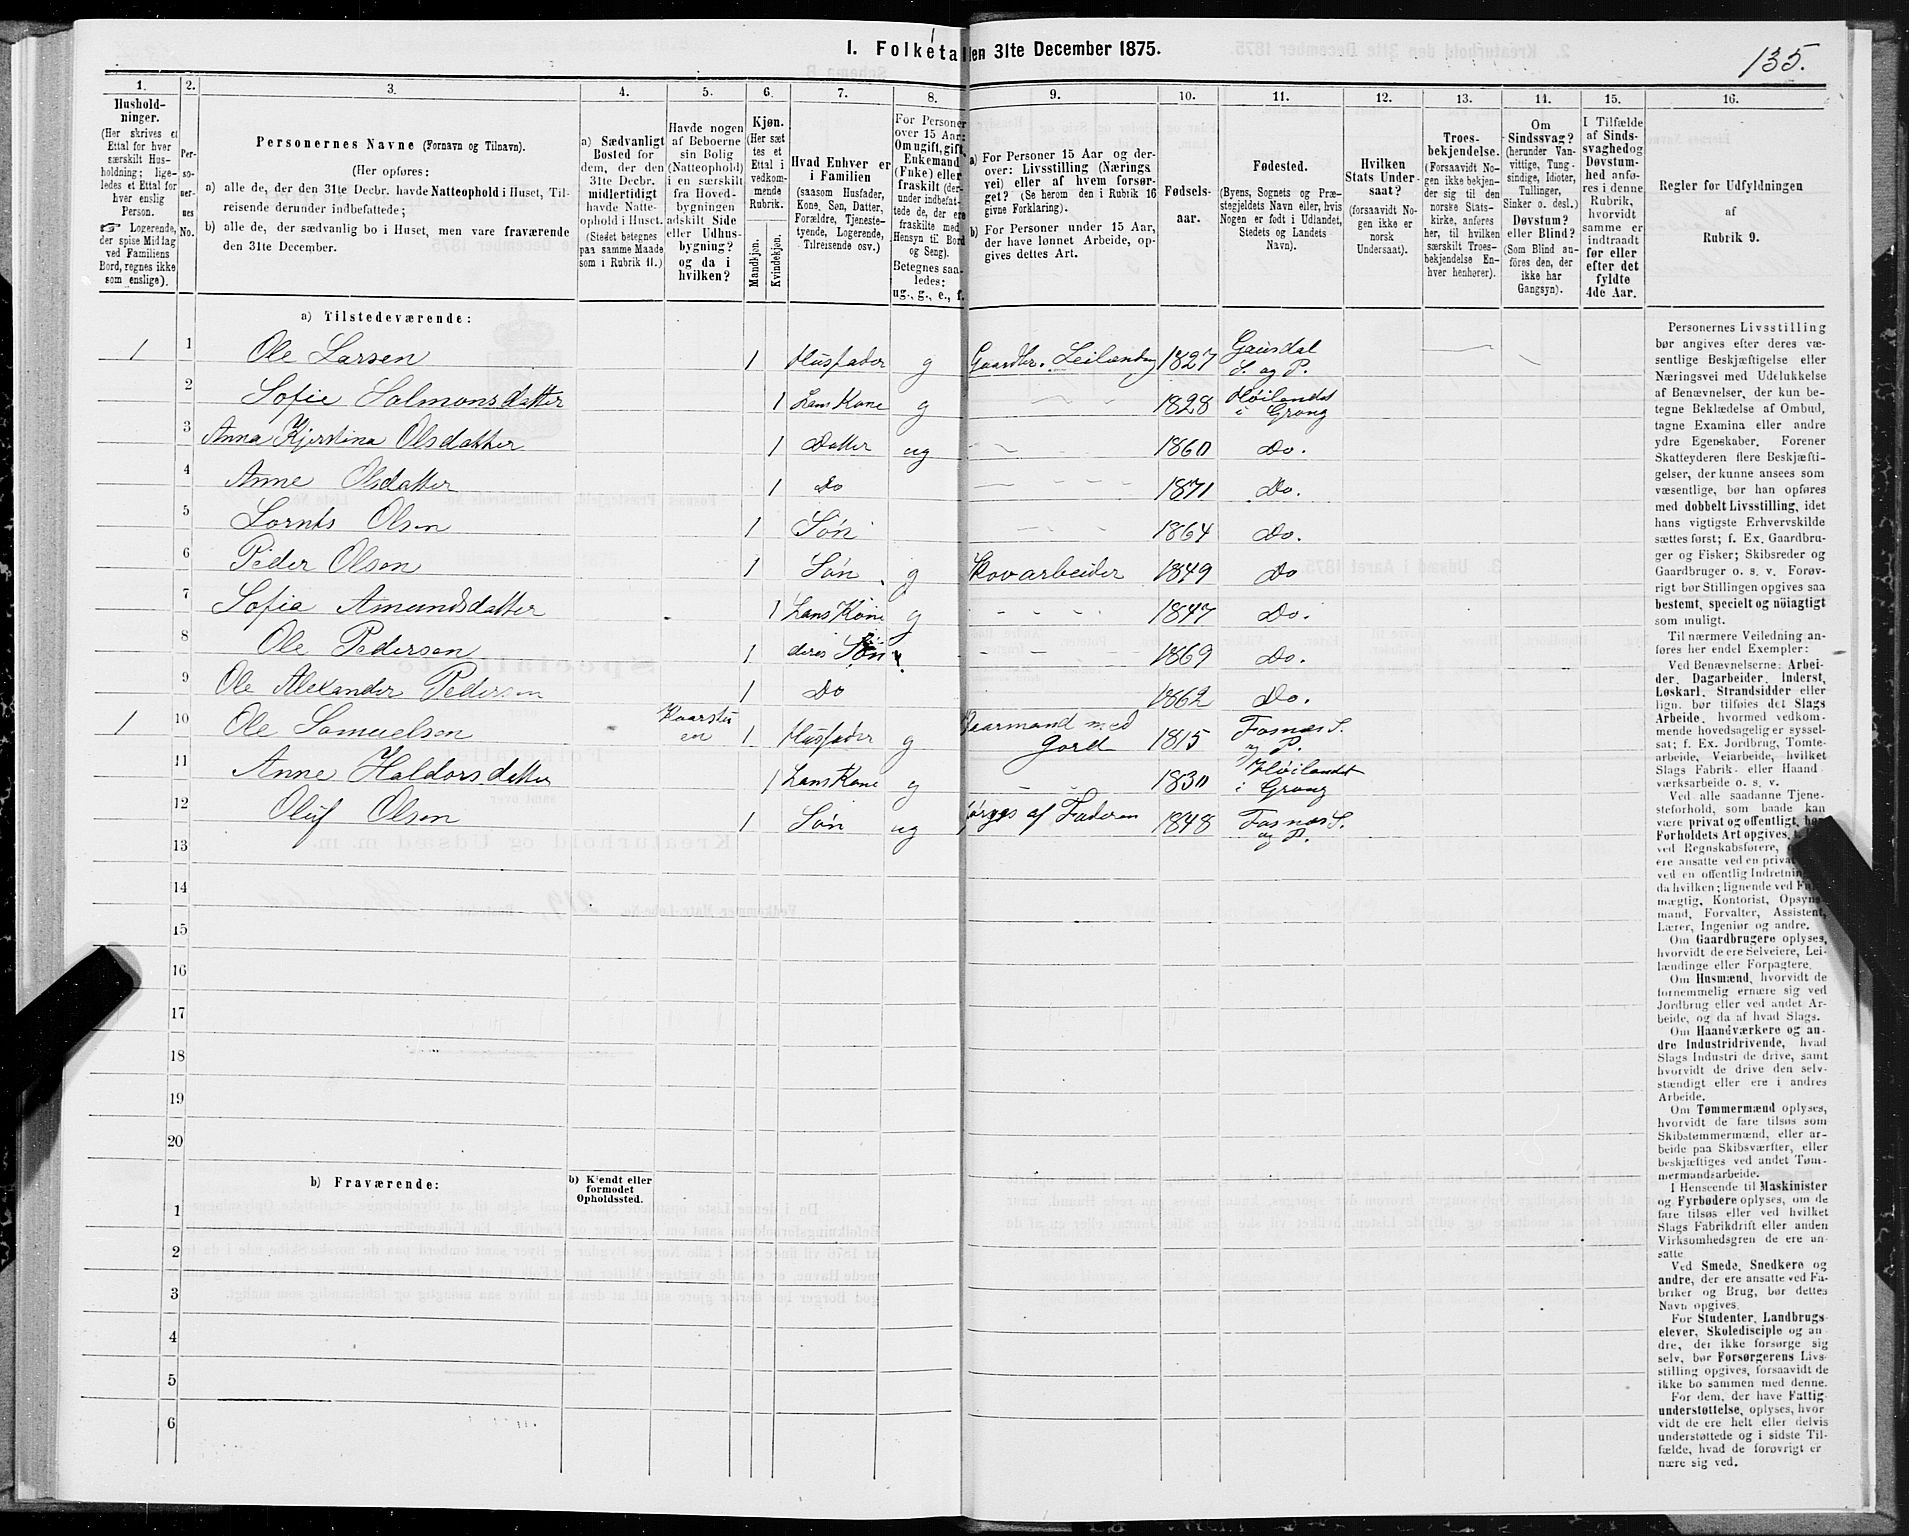 I. Folketal den 31te December 1875.
135.
1.
Hushold-
ninger.
(Her skrives et
Ettal for hver
særskilt Hus-
holdning; lige-
ledes et Ettal for
hver enslig
Person.
☞ Logerende,
der spise Middag
ved Familiens
Bord, regnes ikke
som enslige).
2.
Per-
so-
ner-
nes
No.
3.
Personernes Navne (Fornavn og Tilnavn).
(Her opføres:
a) alle de, der den 31te Decbr. havde Natteophold i Huset, Til-
reisende derunder indbefattede;
b) alle de, der sædvanlig bo i Huset, men vare fraværende
den 31te December.
4.
a) Sædvanligt
Bosted for
dem, der den
31te Decbr.
midlertidigt
havde Natte-
ophold i Huset.
(Stedet betegnes
paa samme Maade
som i Rubrik 11.)
5.
Havde nogen
af Beboerne
sin Bolig
(Natteophold)
i en særskilt
fra Hoved-
bygningen
adskilt Side
eller Udhus-
bygning?
og da i
hvilken?
6.
Kjøn.
(Her sæt
tes et
Ettal i
vedkom-
mende
Rubrik.
Mandkjøn.
Kvindekjøn.
7.
Hvad Enhver er
i Familien
(saasom Husfader,
Kone, Søn, Datter,
Forældre, Tjeneste-
tyende, Logerende,
Tilreisende osv.)
8.
For Personer
over 15 Aar:
Om ugift, gift,
Enkemand
(Enke) eller
fraskilt (der-
under indbefat-
tede de, der ere
fraskilte med
Hensyn til Bord
og Seng).
Betegnes saa-
ledes:
ug., g., e., f.
9.
a) For Personer 15 Aar og der-
over: Livsstilling (Nærings
vei) eller af hvem forsør-
get? (Se herom den i Rubrik 16
givne Forklaring).
b) For Personer under 15 Aar,
der have lønnet Arbeide, op-
gives dettes Art.
10.
Fødsels-
aar.
11.
Fødested.
(Byens, Sognets og Præ-
stegjeldets Navn eller, hvis
Nogen er født i Udlandet,
Stedets og Landets
Navn).
12.
Hvilken
Stats Under-
saat?
(forsaavidt No-
gen ikke er
norsk
Undersaat).
13.
Troes-
bekjendelse.
(Forsaavidt No-
gen ikke bekjen-
der sig til den
norske Stats-
kirke, anføres
her, til hvilken
særskilt Troes-
bekjendelse En-
hver henhører).
14.
Om
Sindssvag?
(herunder Van-
vittige, Tung-
sindige, Idioter,
Tullinger,
Sinker o. desl.)
Døvstum?
eller Blind?
(Som Blind an-
føres den, der
ikke har
Gangsyn).
15.
I Tilfælde
af Sinds-
svaghed og
Døvstum-
hed anfø-
res i denne
Rubrik,
hvorvidt
samme er
indtraadt
før eller
efter det
fyldte
4de Aar.
16.
Regler for Udfyldningen
af
Rubrik 9.
a) Tilstedeværende:
1 1 Ole Larsen 1 Husfader g Gaardbr. Leilending 1827 Gausdal
S. og P.
2 Sofie Salmonsdatter 1 hans Kone g 1828 Høilandet
i Grong
3 Anna Kjerstina Olsdatter 1 Datter ug 1860 Do.
4 Anne Olsdatter 1 Do 1871 Do.
5 Lornts Olsen 1 Søn 1864 Do.
6 Peder Olsen 1 Søn g Skovarbeider 1849 Do
7 Sofia Amundsdatter 1 hans Kone g 1847 Do.
8 Ole Pedersen 1 deres Søn 1869 Do.
9 Ole Alexander Pedersen 1 Do 1862 Do.
1 10 Ole Samuelsen 1 Husfader g Kaarmand med
Jord 1815 Fosnes S.
og P.
11 Anne Haldorsdatter 1 hans Kone g 1830 Høilandet
i Grong
12 Oluf Olsen 1 Søn ug forsørges af Faderen 1848 Fosnes S.
og P.
13
14
15
16
17
18
19
20
b) Fraværende:
b) Kjendt eller
formodet
Opholdssted.
1
2
3
4
5
6
Personernes Livsstilling
bør angives efter deres væ-
sentlige Beskjæftigelse eller
Næringsvei med Udelukkelse
af Benævnelser, der kun be-
tegne Beklædelse af Ombud,
tagne Examina eller andre
ydre Egenskaber. Forener
Skatteyderen flere Beskjæfti-
gelser, der kunne ansees som
væsentlige, bør han opføres
med dobbelt Livsstilling, idet
hans vigtigste Erhvervskilde
sættes først; f. Ex. Gaardbru-
ger og Fisker; Skibsreder og
Gaardbruger o. s. v. Forøv-
rigt bør Stillingen opgives saa
bestemt, specielt og nøiagtigt
som muligt.
Til nærmere Veiledning an-
føres her endel Exempler:
Ved Benævnelserne: Arbei-
der, Dagarbeider, Inderst,
Løskarl, Strandsidder eller
lign. bør tilføies det Slags
Arbeide, hvormed vedkom-
mende hovedsagelig er syssel-
sat; f. Ex. Jordbrug, Tomte-
arbeide, Veiarbeide, hvilket
Slags Fabrik- eller Haand-
værksarbeide o. s. v.
Ved alle saadanne Tjene-
steforhold, som baade kan
være privat og offentligt, bør
Forholdets Art opgives,
ved Regnskabsførere,
ere ansatte ved en privat
ved en offentlig Indretning
da hvilken; lignende ved Fuld-
mægtig, Kontorist, Opsyns-
mand, Forvalter, Assistent,
Lærer, Ingeniør og andre.
Om Gaardbrugere oplyses,
hvorvidt de ere Selveiere, Lei-
lændinge eller Forpagtere.
Om Husmænd, hvorvidt de
fornemmelig ernære sig ved
Jordbrug eller ved andet Ar-
beide, og da af hvad Slags.
Om Haandværkere og an-
dre Industridrivende, hvad
Slags Industri de drive, samt
hvorvidt de drive den selv-
stændigt eller ere i andres
Arbeide.
Om Tømmermænd oplyses,
hvorvidt de fare tilsøs som
Skibstømmermænd, eller ar-
beide paa Skibsværfter, eller
beskjæftiges ved andet Tøm-
mermandsarbeide.
I Henseende til Maskinister
og Fyrbødere oplyses, om de
fare tilsøs eller ved hvilket
Slags Fabrikdrift eller anden
Virksomhedsgren de ere an-
satte
Ved Smede, Snedkere og
andre, der ere ansatte ved Fa-
briker og Brug, bør dettes
Navn opgives.
For Studenter, Landbrugs-
elever, Skoledisciple og an-
dre, der ikke forsørge sig
selv, bør Forsørgerens Livs-
stilling opgives, forsaavidt de
ikke bo sammen med denne.
For dem, der have Fattig-
understøttelse, oplyses, hvor-
vidt de ere helt eller delvis
understøttede og i sidste Til-
fælde, hvad de forøvrigt er-
nære sig ved.